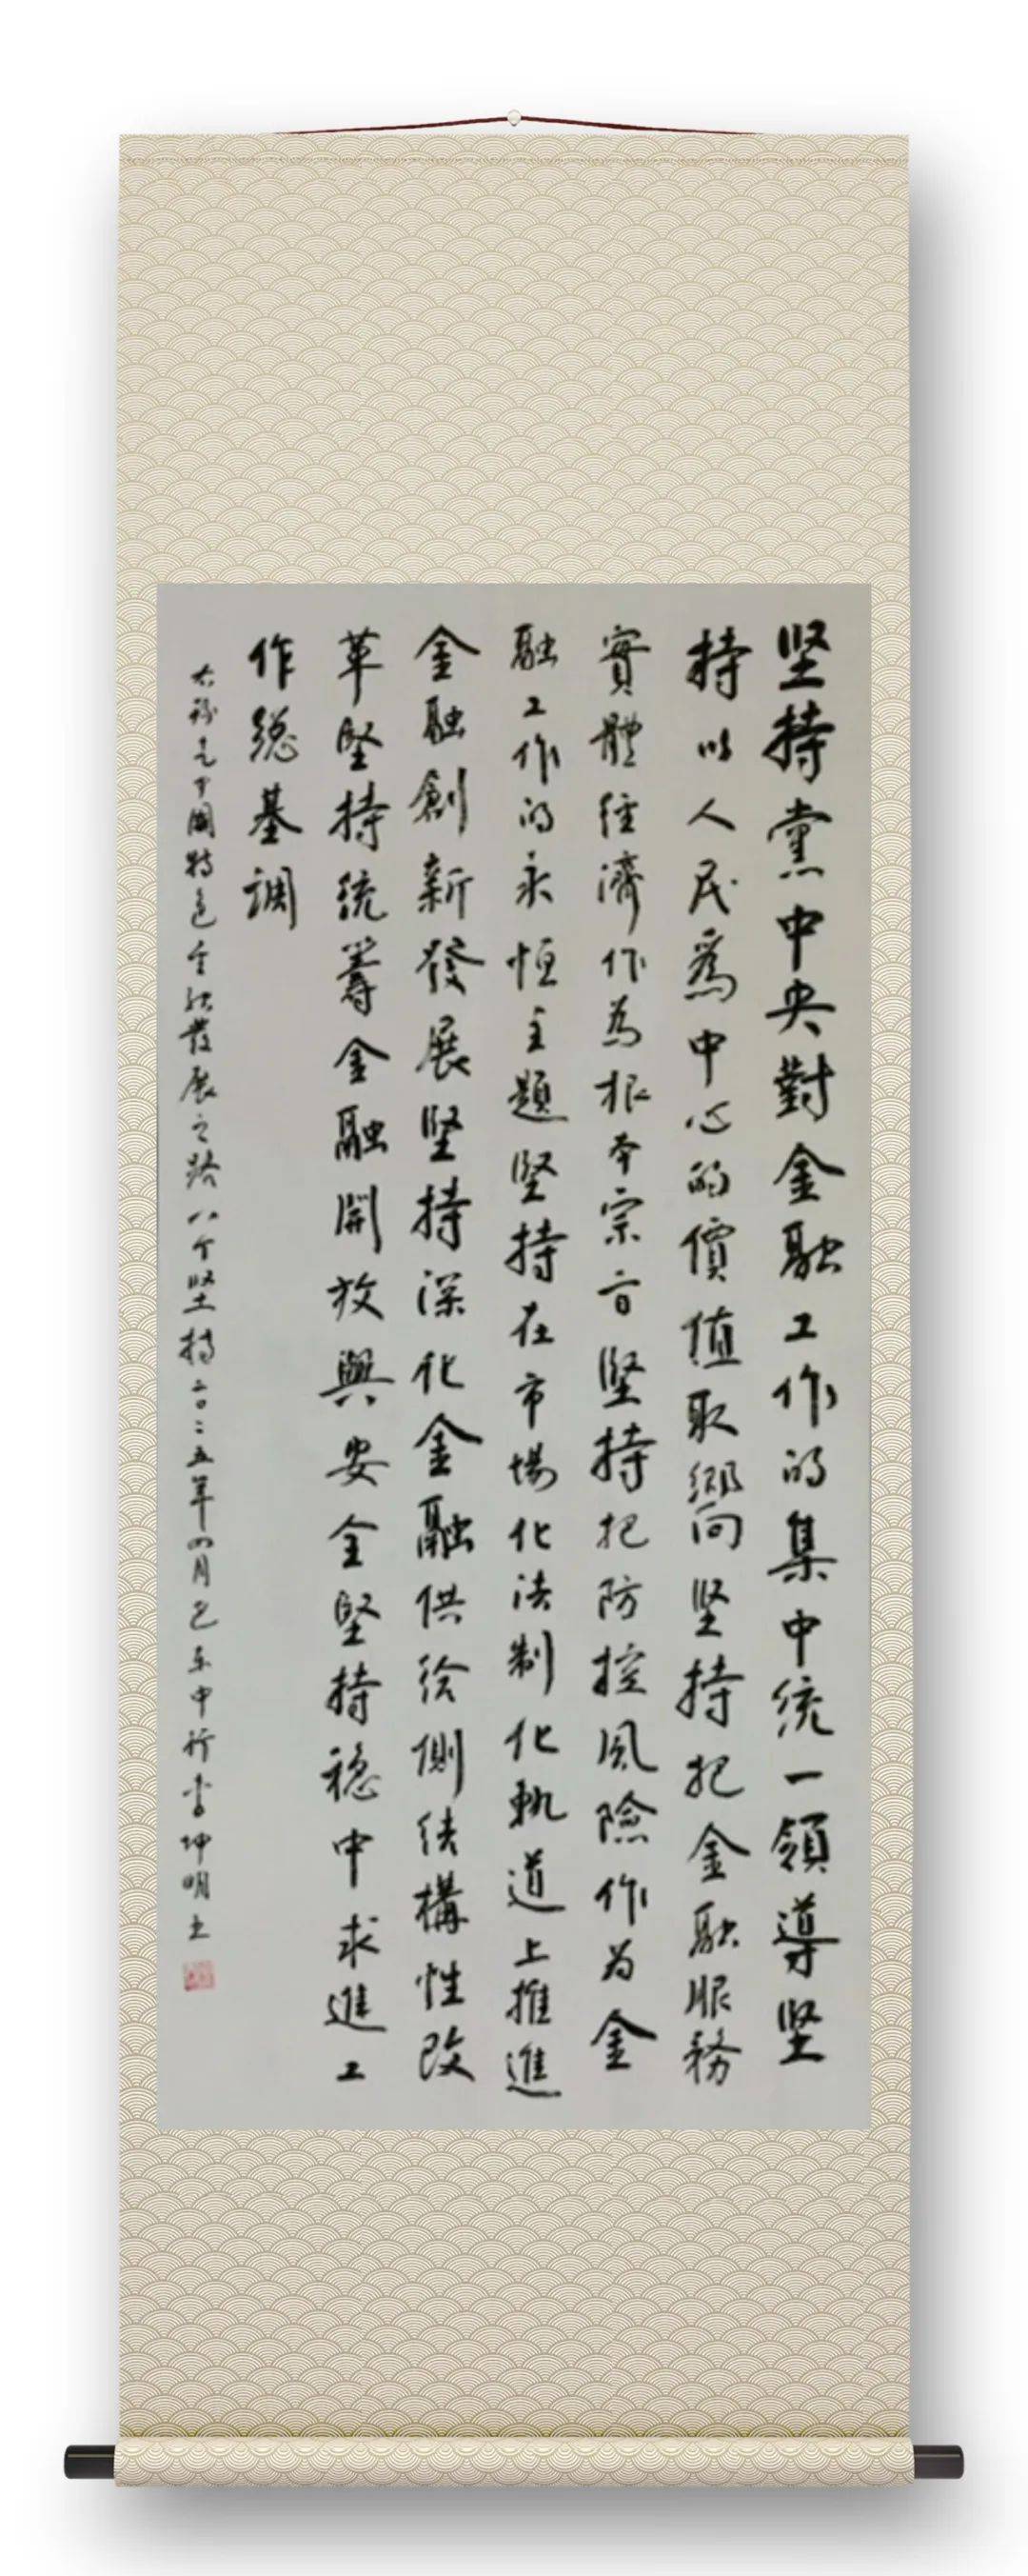 坚持黨中央對金融工作的集中統一領導坚
持以人民爲中心的價值取嚮向坚持把金融服務
實體経濟作為根本宗旨堅持把防控風險作为金
融工作的永恒主題堅持在市場化法制化軌道上推進
金融創新發展堅持深化金融供给側结構性改
革堅持統籌金融開放與安全堅持稳中求進工
作總基調
右録走中國特色金融發展之路八个坚持二〇二五年四月乙東中行李坤明書